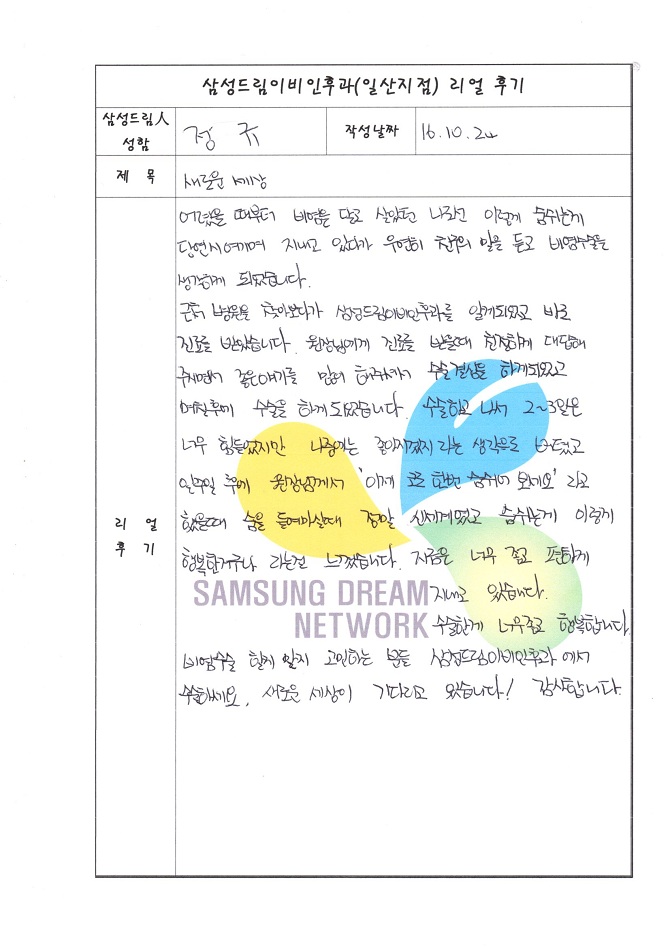 삼성드림이비인후과(일산지점) 리얼 후기
삼성드림人 성함
정 규
작성날짜
16.10.24
제 목
새로운 세상
리 얼 후 기
어렸을 때부터 비염을 달고 살았던 나라선 이렇게 숨쉬는게
당연시여기며 지내고 있다가 우연히 친구의 말을 듣고 비염수술을
생각하게 되었습니다.
근처 병원을 찾아보다가 삼성드림이비인후과를 알게되었고 바로
진료를 받았습니다. 원장님에게 진료를 받을때 친절하게 대답해
주시면서 좋은얘기를 많이 해주셔서 수술결심을 하게되었고
며칠후에 수술을 하게 되었습니다. 수술하고 나서 2~3일은
너무 힘들었지만 나중에는 좋아지겠지 라는 생각으로 버텼고
일주일 후에 원장님께서 '이제 코로 한번 숨쉬어 보세요' 라고
했을때 숨을 들여마실때 정말 신세계였고 숨쉬는게 이렇게
행복한거구나 라는걸 느꼈습니다. 지금은 너무 좋고 편하게
지내고 있습니다.
수술한게 너무좋고 행복합니다.
비염수술 할지 말지 고민하는 분들 삼성드림이비인후과 에서
수술하세요. 새로운 세상이 기다리고 있습니다! 감사합니다.
SAMSUNG DREAM
NETWORK